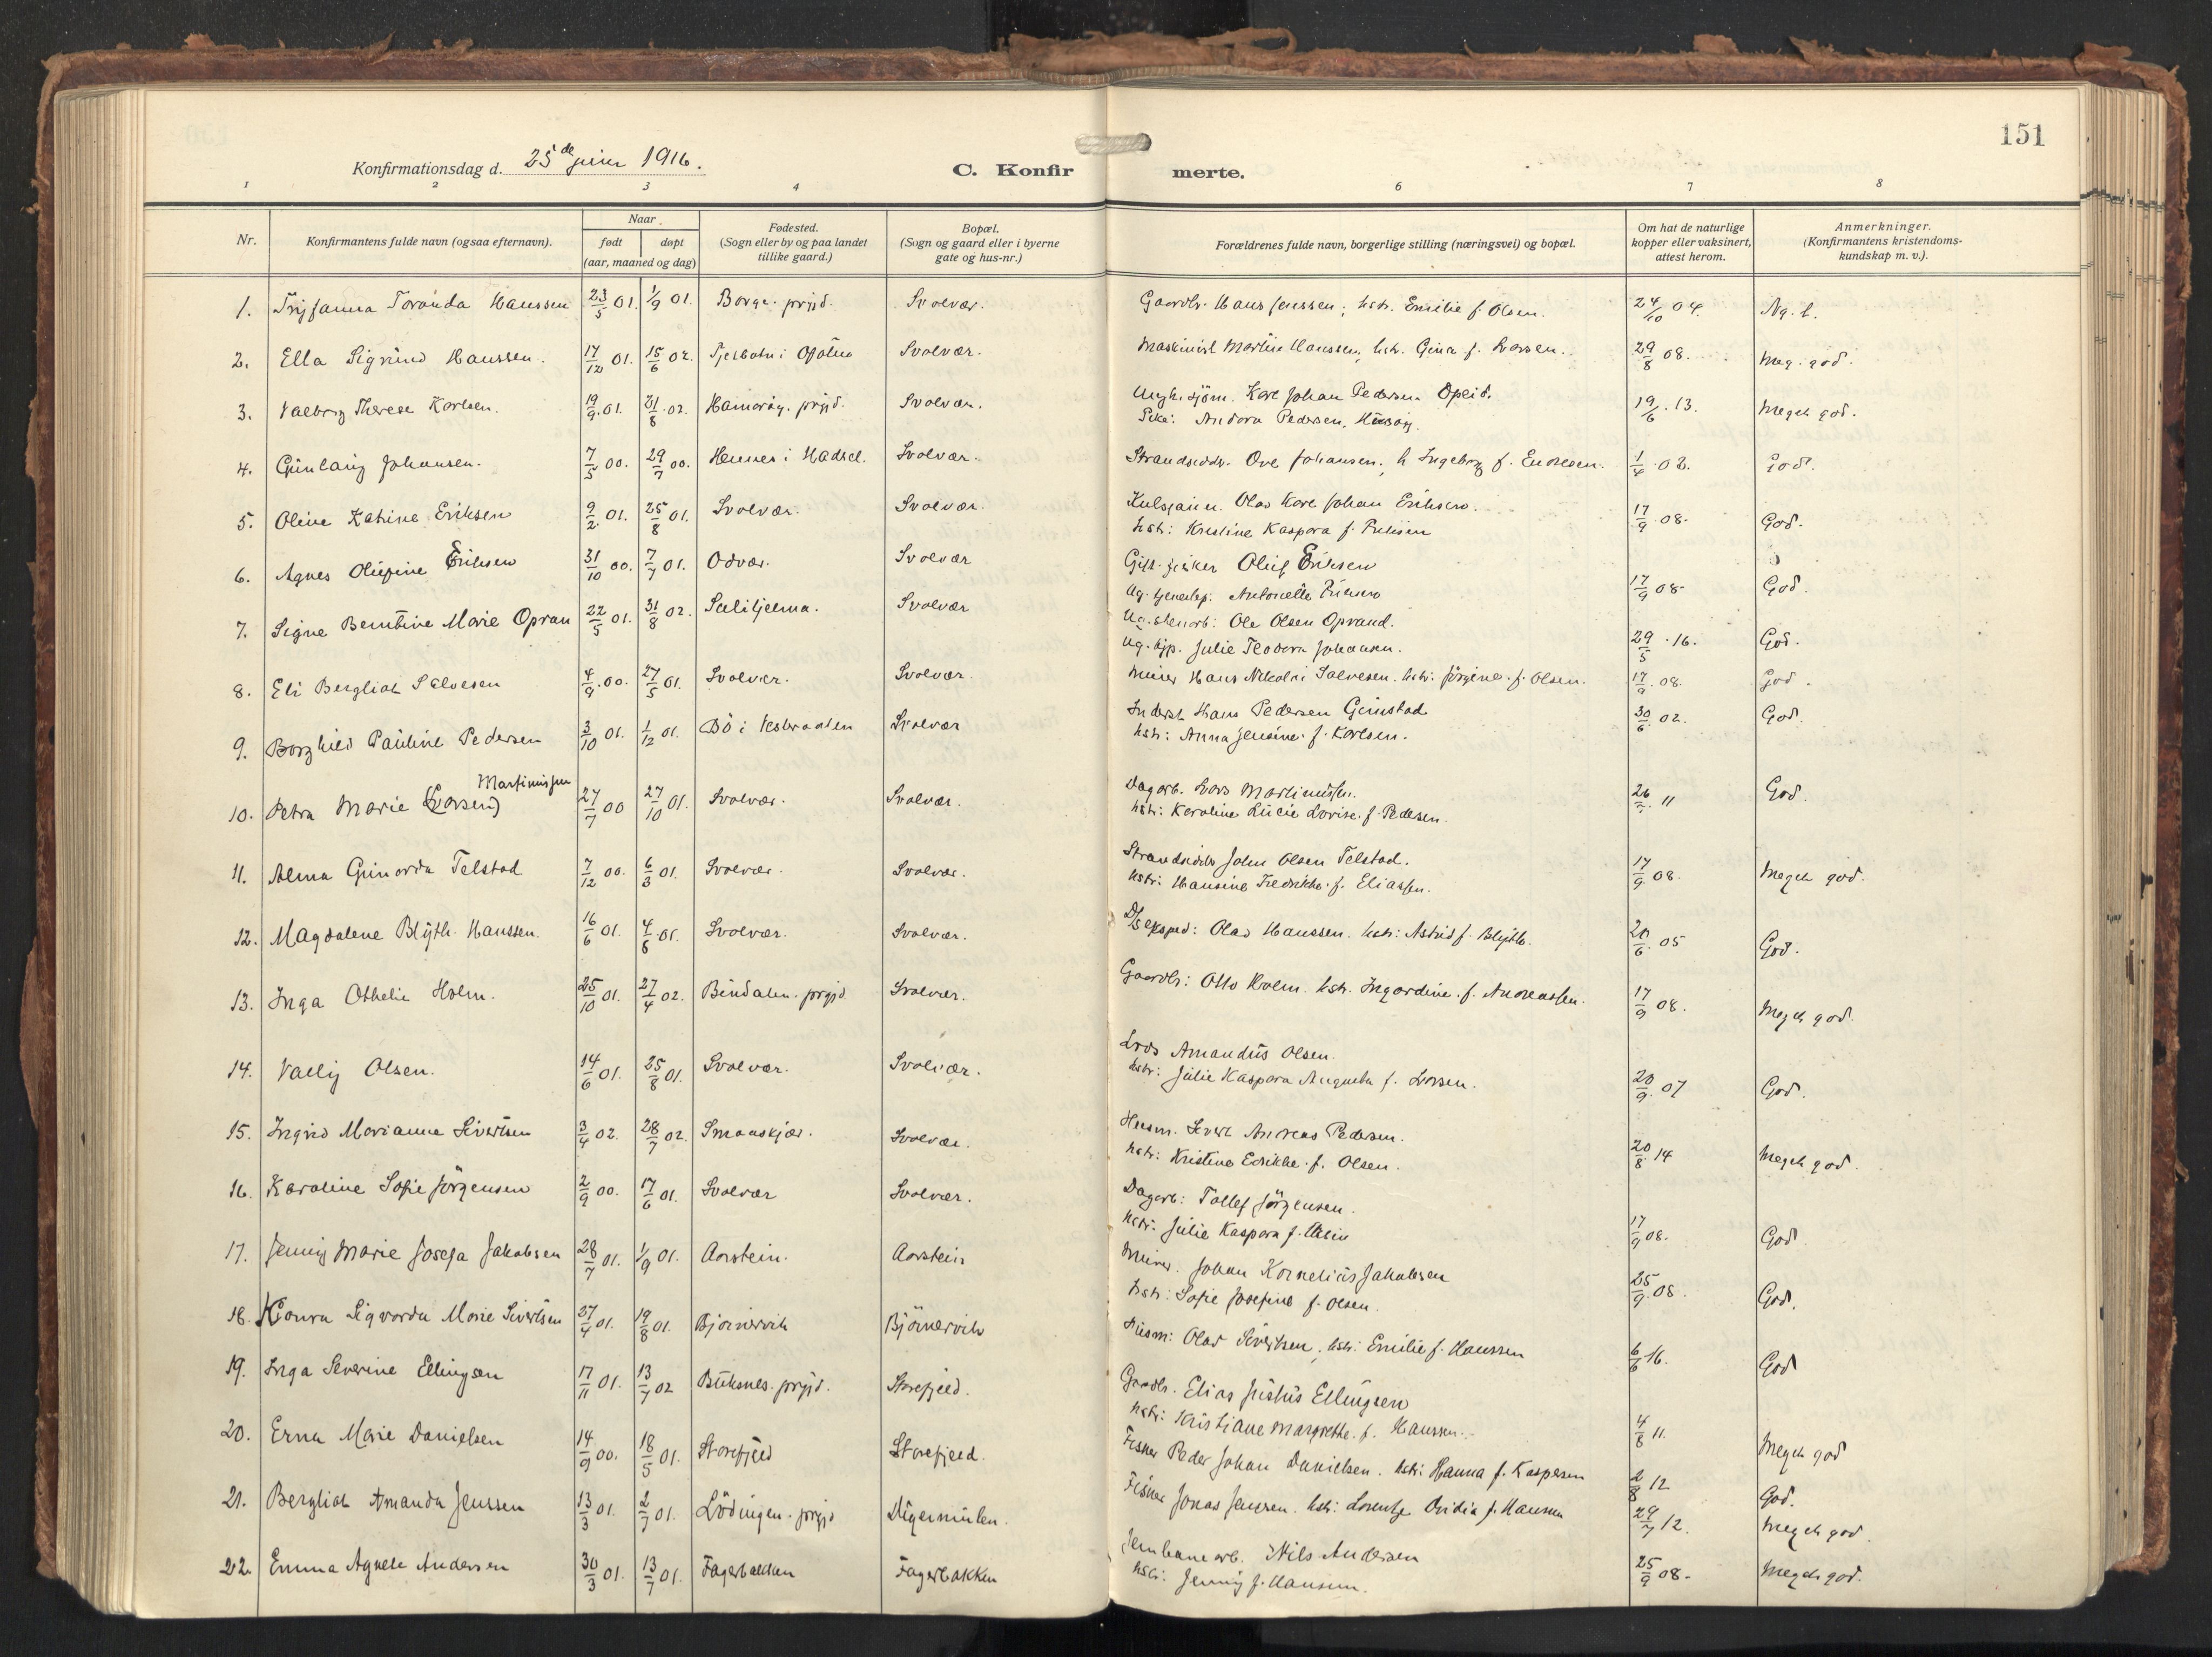 151
Konfirmationsdag d. 25de juni 1916.
C. Konfirmerte.
1 2 3 4 6 7 8
Nr. Konfirmantens fulde navn (ogsaa efternavn). Naar født døpt (aar, maaned og dag) Fødested. (Sogn eller by og paa landet tillike gaard.) Bopæl. (Sogn og gaard eller i byerne gate og hus-nr.) Forældrenes fulde navn, borgerlige stilling (næringsvei) og bopæl. Om hat de naturlige kopper eller vaksinert, attest herom. Anmerkninger. (Konfirmantens kristendomskundskap m. v.).
1. Toranda Hanssen 23/5 01. 1/9 01. Borge. prgjd. Svolvær. Gaardbr. Hans Jenssen; hstr. Emilie f. Olsen. 24/10 04. Ng. t.
2. Ella Sigrund Hanssen. 17/12 01. 15/6 02. i Ofoten Svolvær. Maskinist Martin Hanssen, hstr. Gina f. Larsen. 29/8 08. Meg. god.
3. Valborg Therese Karlsen. 19/9 01. 31/8 02. Hamarøy. prgjd. Svolvær. Ungk. sjøm. Karl Johan Pedersen Opeid. 19/6 13. Meget god.
Pike: Andora Pedersen,
4. Gunlaug Johansen. 7/5 00. 29/7 00. Hennes i Hadsel. Svolvær. Strandsidder Ove Johansen, h Ingeborg f. Endresen. 1/4 02. God.
5. Oline Katrine Eriksen 9/2 01. 25/8 01. Svolvær. Svolvær. Olav Karl Johan Eriksen. 17/9 08. God.
hstr: Kristine Kaspara f.
6. Agnes Oliefine Eriksen 31/10 00. 7/7 01. Odvær. Svolvær Gift fisker Oluf Eriksen
Ug. Antonette 17/9 08 God.
7. Signe Berntine Marie Opran 22/5 01. 31/8 02. Sulitjelma. Svolvær Ug. stenarb: Ole Olsen Oprand.
Ug. Julie Teodora Johansen. 29/5 16. God.
8. Eli Bergliot Salvesen 4/9 00. 27/5 01. Svolvær. Svolvær Murer Hans Nikolai Salvesen. hstr: Jørgine f. Olsen. 17/9 08. God.
9. Borghild Pauline Pedersen 3/10 01. 1/12 01. Bö i Vesteraalen Svolvær Inderst Hans Pedersen Grimstad 30/6 02. God.
hstr: Anna Jensine f. Karlsen.
Martinussen
10. Petra Marie (Larsen) 27/7 00 27/10 01. Svolvær. Svolvær. Dagarb. Lars Martinussen. 26/7 11 God.
hstr: Karoline Lucie Lovise f. Pedersen.
11. Alma Gunarda Telstad 7/12 00. 6/3 01. Svolvær. Svolvær. Strandsidder John Olsen Telstad. 17/9 08. Meget god.
hstr: Hansine Fredrikke f. Eliassen.
12. Magdalene Blyth. Hanssen. 16/6 01. 4/8 01. Svolvær. Svolvær. D/s eksped: Olav Hanssen. hstr: Astrid f. Blyth. 20/6 05 God.
13. Inga Othelie Holm. 25/10 01. 27/4 02. Bindalen. prgjd Svolvær. Gaardbr: Otto Holm. hstr. Ingardine f. Andreassen. 17/9 08. Meget god.
14. Vally Olsen. 14/6 01. 25/8 01. Svolvær. Svolvær. Lods Amandus Olsen.
hstr: Julie Kaspara Augusta f. Larsen. 20/9 07 God.
15. Ingrid Marianne Sivertsen 3/4 02. 28/7 02. Smaaskjær. Svolvær. Husm. Sivert Andreas Pedersen.
hstr: Kristine Edrikke f. Olsen. 20/8 14 Meget god.
16. Karoline Sofie Jörgensen 2/9 00. 17/6 01. Svolvær Svolvær. Dagarb: Tollef Jörgensen.
hstr: Julie Kaspara f. 17/9 08. God
17. Jenny Marie Josefa Jakobsen 28/7 01. 1/9 01. Aarstein. Aarstein Murer. Johan Kornelius Jakobsen 25/9 08. God.
hstr: Sofie Josefine f. Olsen.
18. Konra Sigvarda Marie Sivertsen 27/4 01. 19/8 01. Björnervik Björnervik Husm: Olav Sivertsen, hstr: Emilie f. Hanssen 6/6 16. God
19. Inga Severine Ellingsen 17/11 01. 13/7 02 Buksnes. prgjd. Storefjeld. Gaardbr. Elias Justus Ellingsen
hstr: Kristiane Margrethe f. Hanssen. 4/8 11. Meget god
20. Erna Marie Danielsen 14/9 00. 18/5 01. Storefjeld Storefjeld. Fisker Peder Johan Danielsen. hstr: Hanna f. Kaspersen 2/8 12 God.
21. Bergliot Amanda Jenssen 13/3 01. 2/7 01. Lödingen. prgjd Digermulen. Fisker Jonas Jenssen. hstr: Lorentze Ovidia f. Hansen 29/7 12. Meget god
22. Emma Agnete Andersen 30/3 01. 13/7 01. Fagerbakken Fagerbakken Jernbanearb. Nils Andersen
hstr: Jenny f. Hansen. 25/9 08. Meget god.